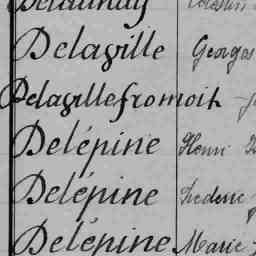 Delaunay
Delaville Georges
Delavillefromoit
Delépine Henri
Delépine Frederic
Delépine Marie